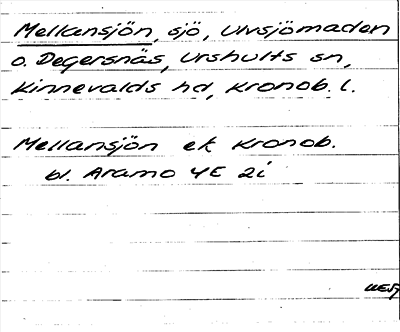 Mellansjön, sjö, Ulvsjömaden
o. Degersnäs, Urshults sn,
Kinnevalds hd, Kronob. l.
Mellansjön ek Kronob.
bl. Aramo 4E 2i